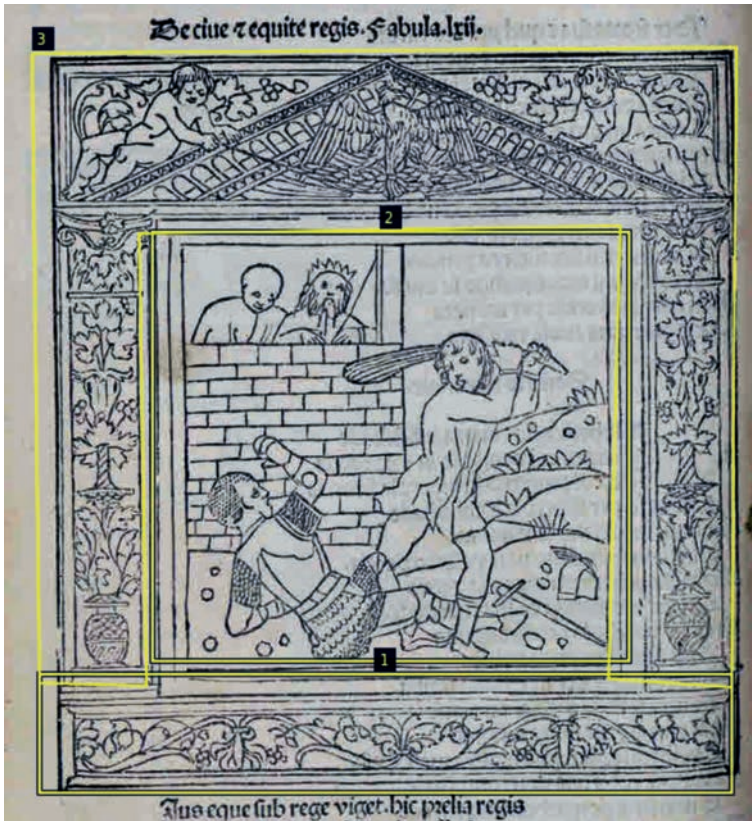 3
De ciue ⁊ equite regis. Fabula. lxii.
2
1
Ius eque sub rege viget. hic prelia regis